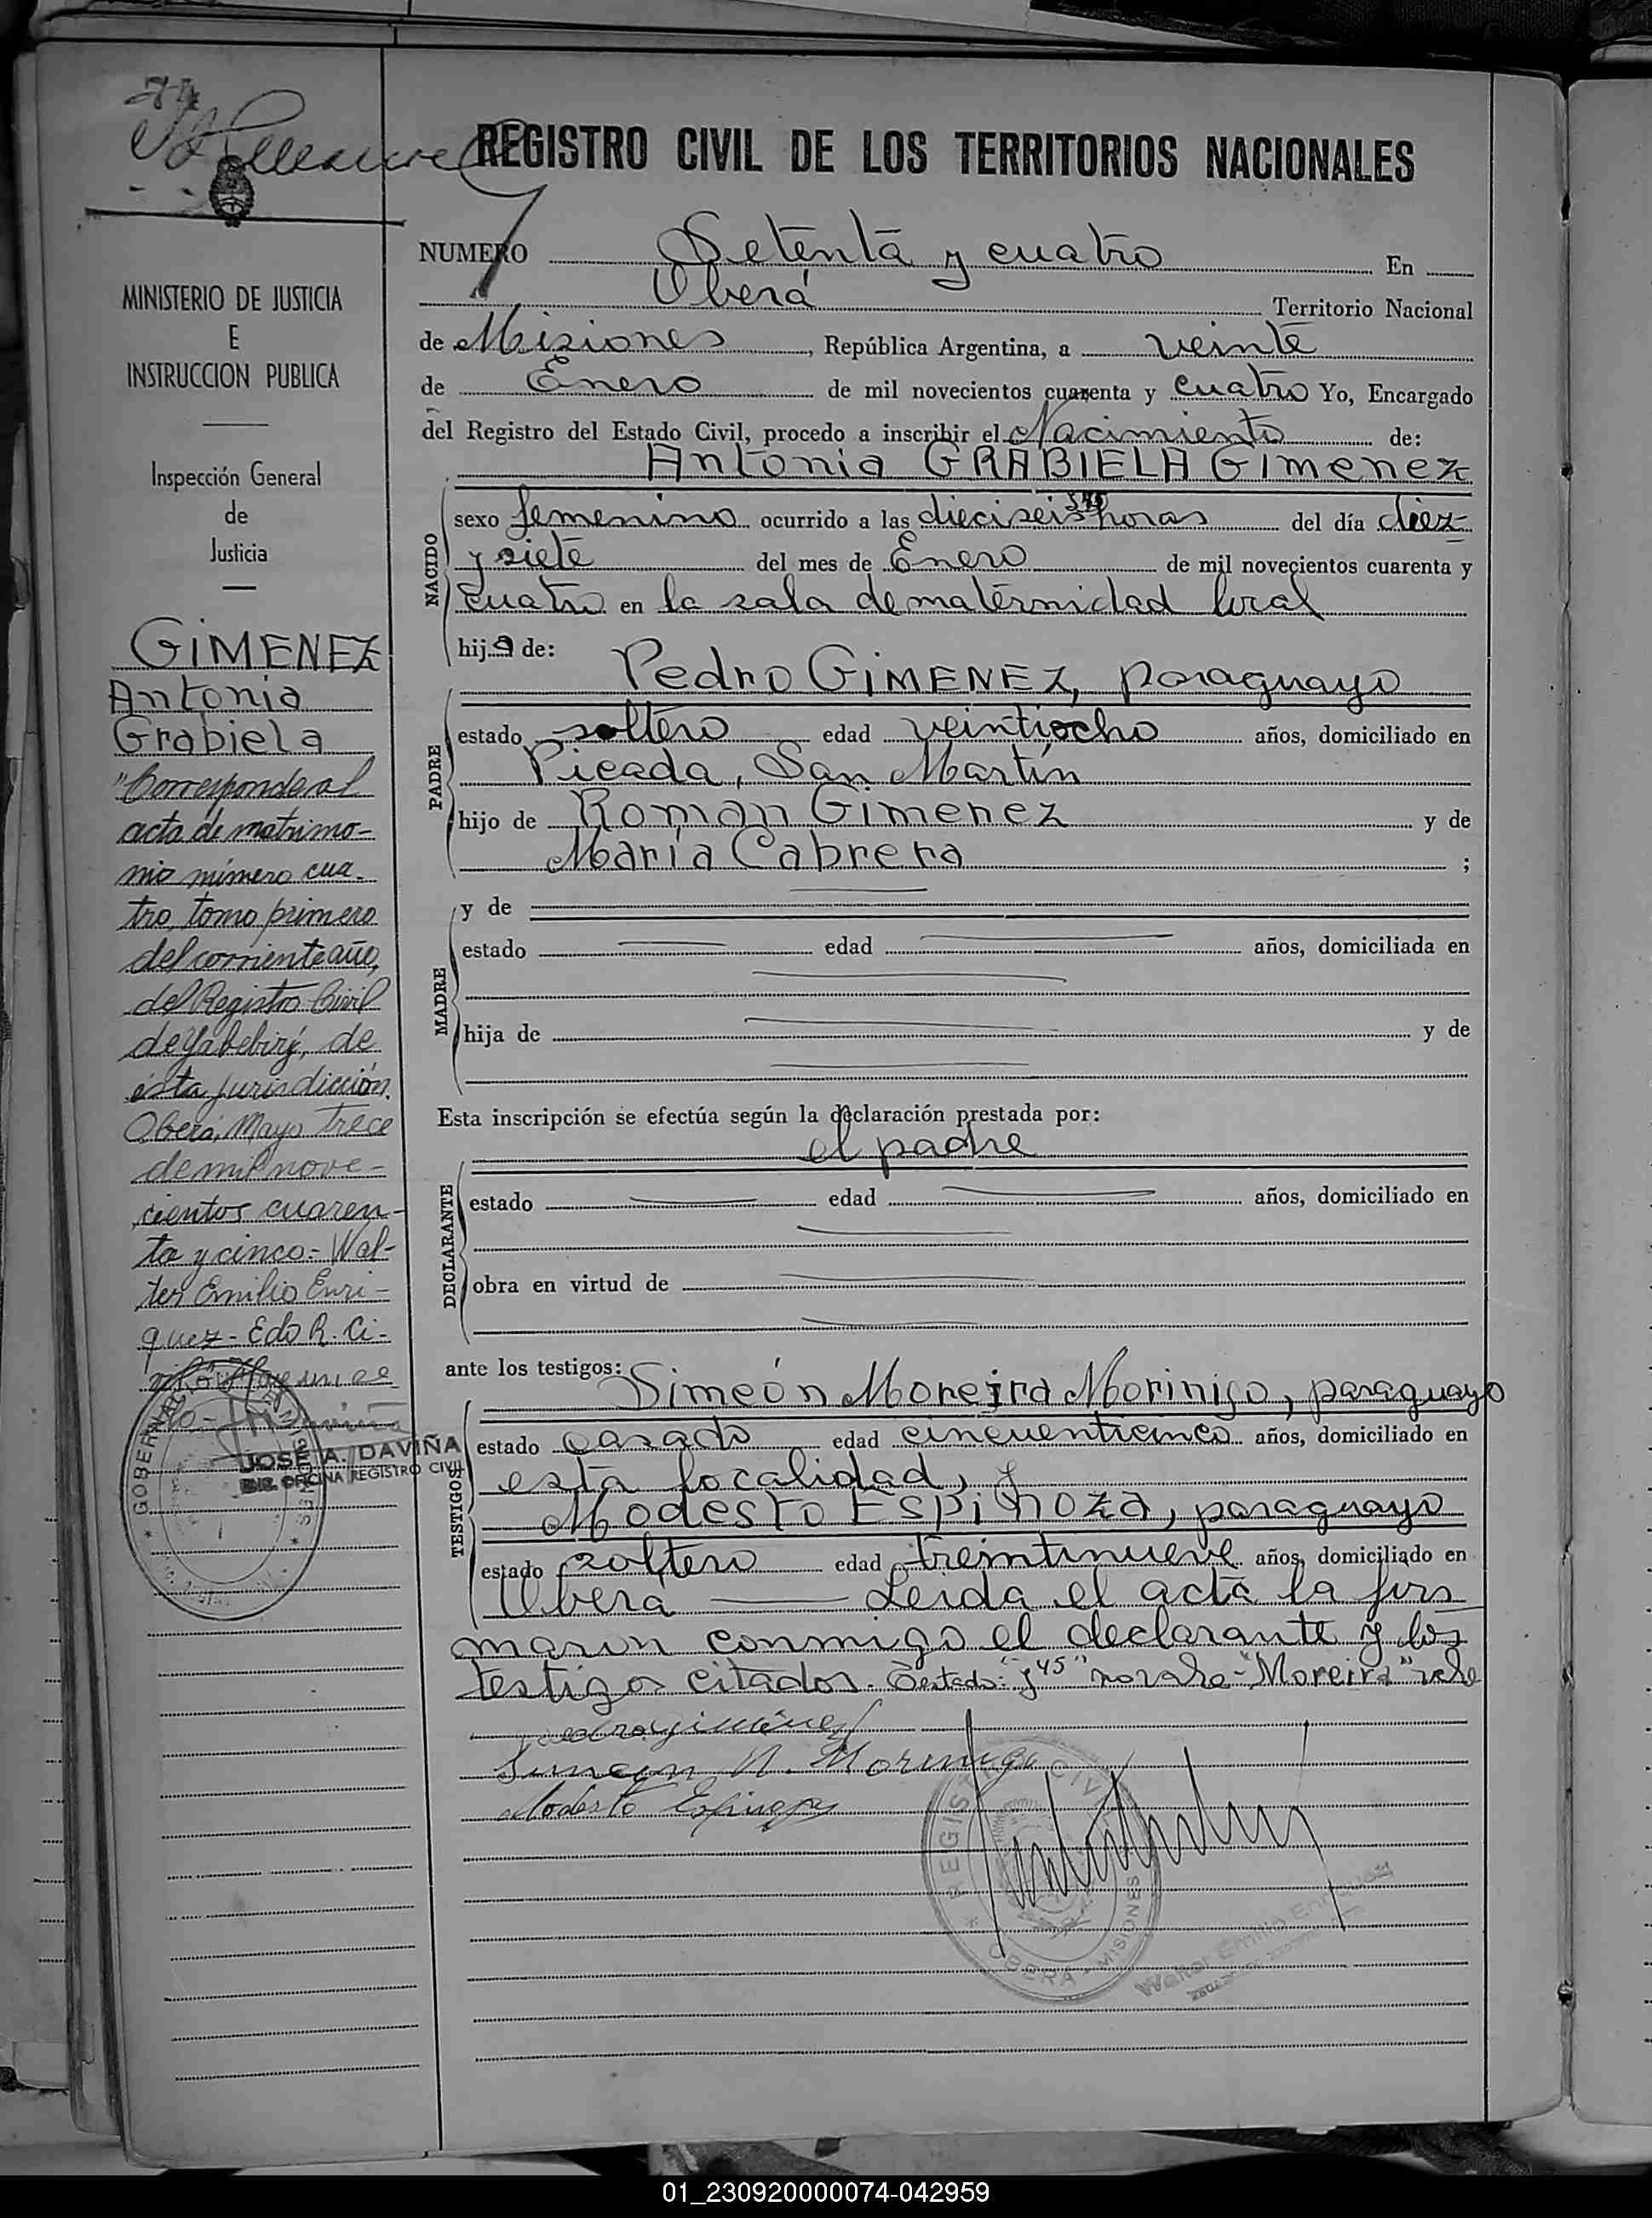 74
REGISTRO CIVIL DE LOS TERRITORIOS NACIONALES
NUMERO Setenta y cuatro En
Oberá Territorio Nacional
de Misiones, República Argentina, a veinte
de Enero de mil novecientos cuarenta y cuatro Yo, Encargado
del Registro del Estado Civil, procedo a inscribir el Nacimiento de:
Antonia GRABIELA Gimenez
NACIDO
sexo femenino ocurrido a las dieciseis horas del día diez
y siete del mes de Enero de mil novecientos cuarenta y
cuatro en la sala de maternidad local
hija de:
PADRE
Pedro GIMENEZ, paraguayo
estado soltero edad veintiocho años, domiciliado en
Picada, San Martín
hijo de Roman Gimenez y de
María Cabrera ;
MADRE
y de
estado edad años, domiciliada en
hija de y de
Esta inscripción se efectúa según la declaración prestada por:
el padre
DECLARANTE
estado edad años, domiciliado en
obra en virtud de
ante los testigos:
TESTIGOS
Simeón Moreira Morinigo, paraguayo
estado casado edad cincuenticinco años, domiciliado en
esta localidad, y
Modesto Espinoza, paraguayo
estado soltero edad treintinueve años, domiciliado en
Oberá Leida el acta la fir
maron conmigo el declarante y los
testigos citados. Testado: "y 45" no vale - "Moreira" vale
Pedro gimenez
Simeon M. Morinigo
Modesto Espinoza
REGISTRO CIVIL
OBERÁ - MISIONES
Walter Emilio Enriquez
MINISTERIO DE JUSTICIA
E
INSTRUCCION PUBLICA
Inspección General
de
Justicia
GIMENEZ
Antonia
Grabiela
"Corresponde al
acta de matrimo-
nio número cua-
tro, tomo primero
del corriente año,
del Registro Civil
de Yabebirý, de
ésta jurisdicción.
Oberá, Mayo trece
de mil nove-
cientos cuaren-
ta y cinco.- Wal-
ter Emilio Enri-
quez - Edo R. Ci-
JOSE A. DAVIÑA
ENC. OFICINA REGISTRO CIVIL
GOBERNACION
MISIONES
01_230920000074-042959